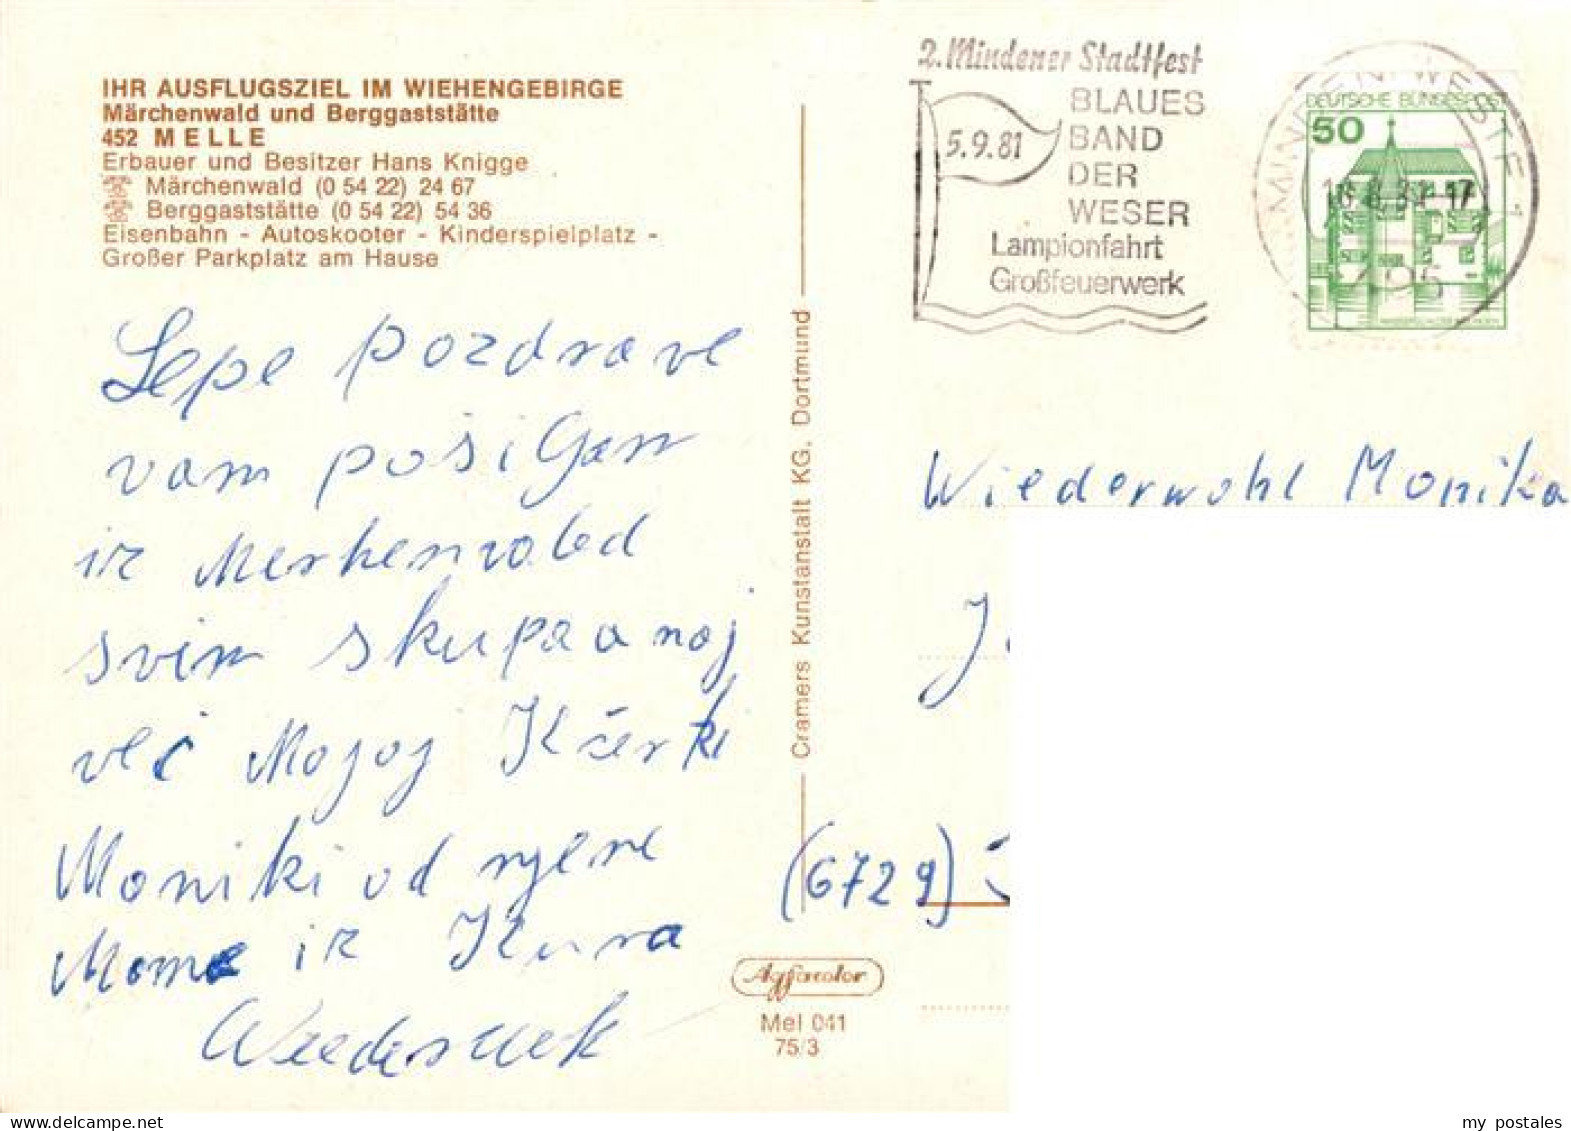 IHR AUSFLUGSZIEL IM WIEHENGEBIRGE
Märchenwald und Berggaststätte
452 MELLE
Erbauer und Besitzer Hans Knigge
☎ Märchenwald (0 54 22) 24 67
☎ Berggaststätte (0 54 22) 54 36
Eisenbahn - Autoskooter - Kinderspielplatz -
Großer Parkplatz am Hause
Lepe pozdrave
vam pošiljam
iz Merhenvaled
svim skupaa naj
već Mojoj Kčerki
Moniki od njene
Mame iz Kura
Cramers Kunstanstalt KG. Dortmund
Agfacolor
Mel 041
75/3
2. Mindener Stadtfest
5.9.81
BLAUES
BAND
DER
WESER
Lampionfahrt
Großfeuerwerk
MINDEN, WESTF 1
495
DEUTSCHE BUNDESPOST
50
Wiederwohl Monika
(6729)
my postales